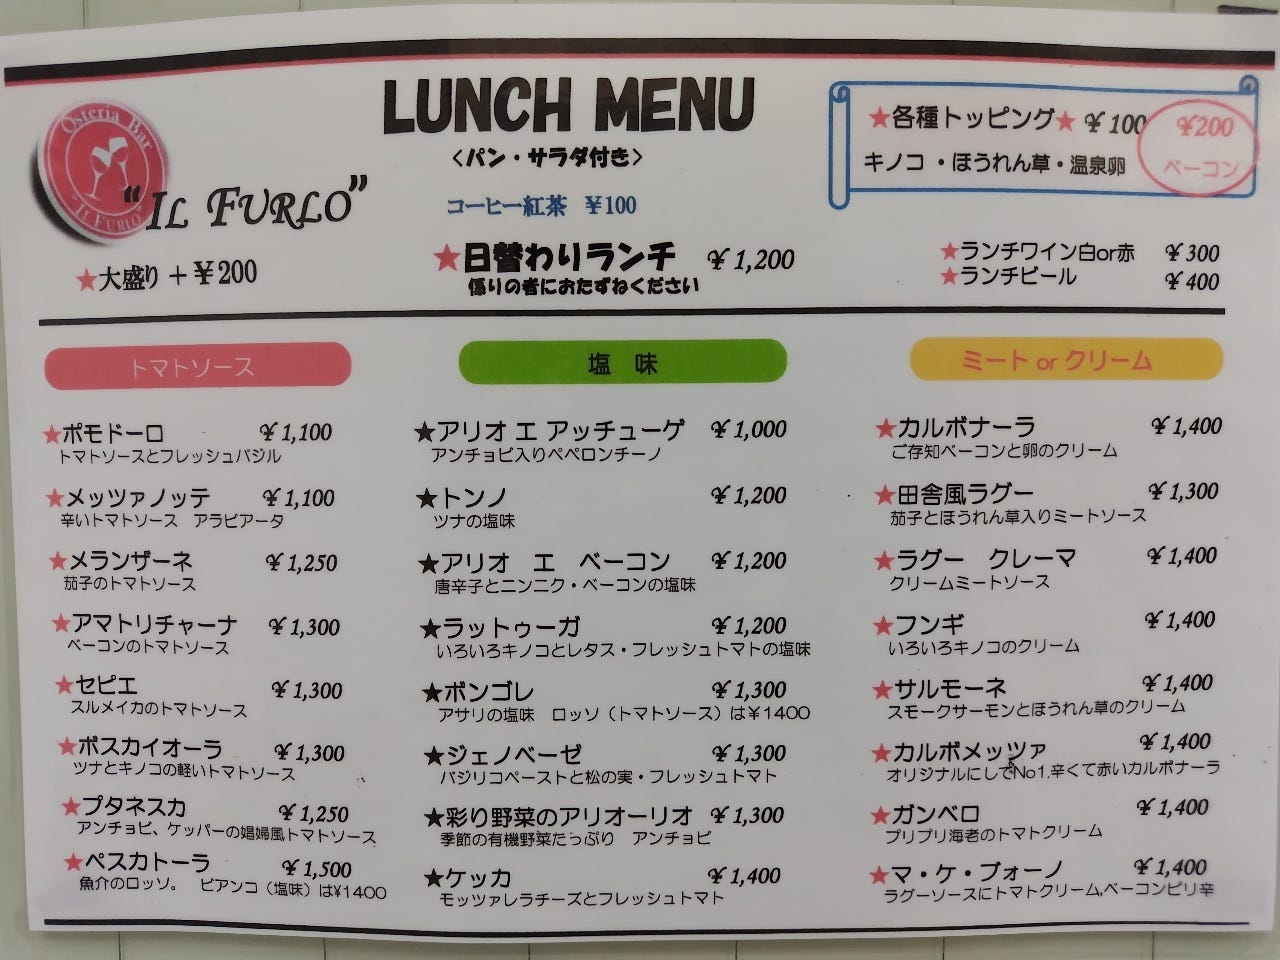 LUNCH MENU
<パン・サラダ付き>
Osteria Bar
IL FURLO
"IL FURLO"
コーヒー紅茶 ¥100
★各種トッピング★ ¥100
キノコ・ほうれん草・温泉卵
¥200
ベーコン
★大盛り+¥200
★日替わりランチ ¥1,200
係りの者におたずねください
★ランチワイン白or赤 ¥300
★ランチビール ¥400
トマトソース
★ポモドーロ ¥1,100
トマトソースとフレッシュバジル
★メッツァノッテ ¥1,100
辛いトマトソース アラビアータ
★メランザーネ ¥1,250
茄子のトマトソース
★アマトリチャーナ ¥1,300
ベーコンのトマトソース
★セピエ ¥1,300
スルメイカのトマトソース
★ボスカイオーラ ¥1,300
ツナとキノコの軽いトマトソース
★プタネスカ ¥1,250
アンチョビ、ケッパーの娼婦風トマトソース
★ペスカトーラ ¥1,500
魚介のロッソ。 ビアンコ(塩味)は¥1400
塩 味
★アリオ エ アッチューゲ ¥1,000
アンチョビ入りペペロンチーノ
★トンノ ¥1,200
ツナの塩味
★アリオ エ ベーコン ¥1,200
唐辛子とニンニク・ベーコンの塩味
★ラットゥーガ ¥1,200
いろいろキノコとレタス・フレッシュトマトの塩味
★ボンゴレ ¥1,300
アサリの塩味 ロッソ(トマトソース)は¥1400
★ジェノベーゼ ¥1,300
バジリコペーストと松の実・フレッシュトマト
★彩り野菜のアリオーリオ ¥1,300
季節の有機野菜たっぷり アンチョビ
★ケッカ ¥1,400
モッツァレラチーズとフレッシュトマト
ミート or クリーム
★カルボナーラ ¥1,400
ご存知ベーコンと卵のクリーム
★田舎風ラグー ¥1,300
茄子とほうれん草入りミートソース
★ラグー クレーマ ¥1,400
クリームミートソース
★フンギ ¥1,400
いろいろキノコのクリーム
★サルモーネ ¥1,400
スモークサーモンとほうれん草のクリーム
★カルボメッツァ ¥1,400
オリジナルにしてNo1.辛くて赤いカルボナーラ
★ガンベロ ¥1,400
プリプリ海老のトマトクリーム
★マ・ケ・ブォーノ ¥1,400
ラグーソースにトマトクリーム,ベーコンピリ辛